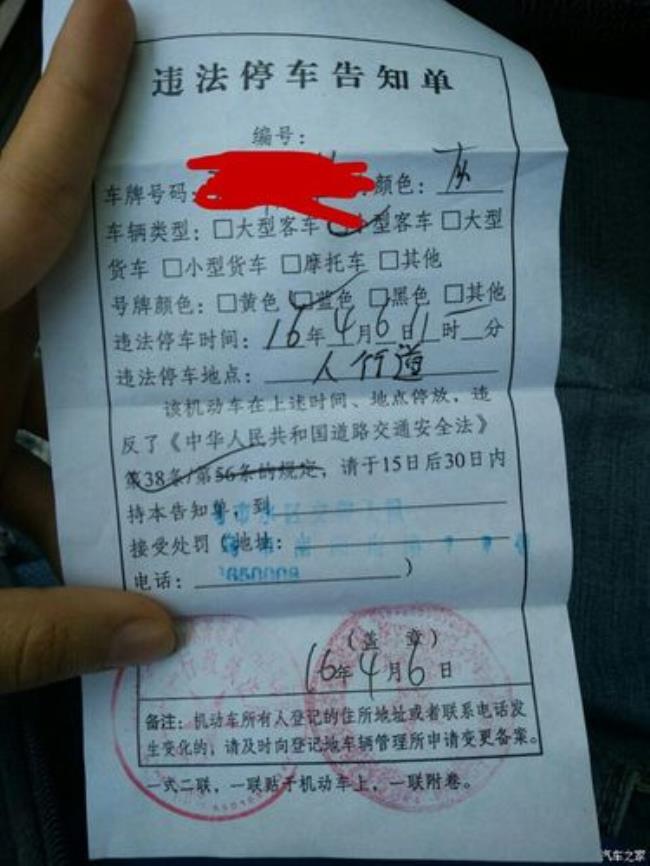 违法停车告知单
编号：
车牌号码： 颜色：灰
车辆类型：□大型客车 □小型客车 □大型
货车 □小型货车 □摩托车 □其他
号牌颜色：□黄色 □蓝色 □黑色 □其他
违法停车时间：16年4月6日11时 分
违法停车地点：人行道
该机动车在上述时间、地点停放，违
反了《中华人民共和国道路交通安全法》
第38条/第56条的规定，请于15日后30日内
持本告知单，到
接受处罚（地址：
电话： ）
（盖 章）
16年4月6日
备注：机动车所有人登记的住所地址或者联系电话发
生变化的，请及时向登记地车辆管理所申请变更备案。
一式二联，一联贴于机动车上，一联附卷。
汽车之家